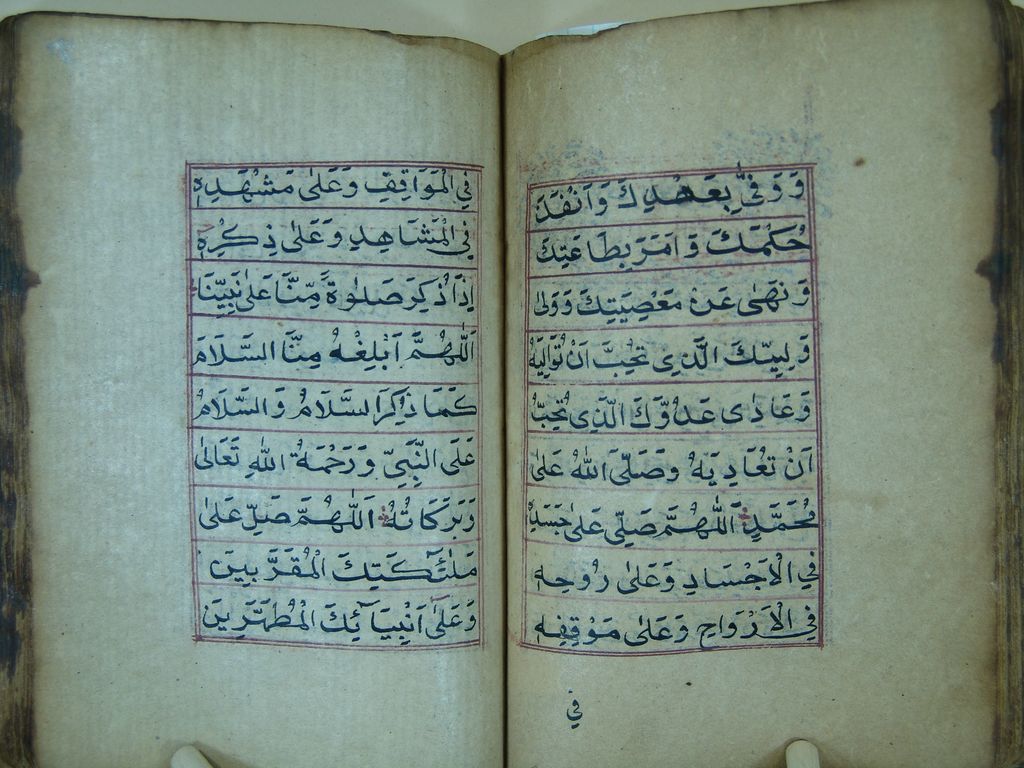 وَوَفّٰى بِعَهْدِكَ وَاَنْفَذَ
حُكْمَكَ وَاَمَرَ بِطَاعَتِكَ
وَنَهٰى عَنْ مَعْصِيَتِكَ وَوَلىٰ
وَلِيِّكَ الَّذِى تُحِبُّ اَنْ تُوَالِيَهُ
وَعَادٰى عَدُوَّكَ الَّذِى تُحِبُّ
اَنْ تُعَادِيَهُ وَصَلَّى اللهُ عَلىٰ
مُحَمَّدٍ اَللّٰهُمَّ صَلِّى عَلىٰ جَسَدِهٖ
فِى الْاَجْسَادِ وَعَلىٰ رُوْحِهٖ
فِى الْاَرْوَاحِ وَعَلىٰ مَوْقِفِهٖ
فِى
فِى الْمَوَاقِفِ وَعَلىٰ مَشْهَدِهٖ
فِى الْمَشَاهِدِ وَعَلىٰ ذِكْرِهٖ
اِذَا ذُكِرَ صَلٰوةً مِّنَّا عَلىٰ نَبِيِّنَا
اَللّٰهُمَّ اَبْلِغْهُ مِنَّا السَّلَامَ
كَمَا ذُكِرَ السَّلَامُ وَالسَّلَامُ
عَلَى النَّبِيِّ وَرَحْمَةُ اللهِ تَعَالىٰ
وَبَرَكَاتُهُ اَللّٰهُمَّ صَلِّ عَلىٰ
مَلٰئِكَتِكَ الْمُقَرَّبِينَ
وَعَلىٰ اَنْبِيَائِكَ الْمُطَهَّرِينَ